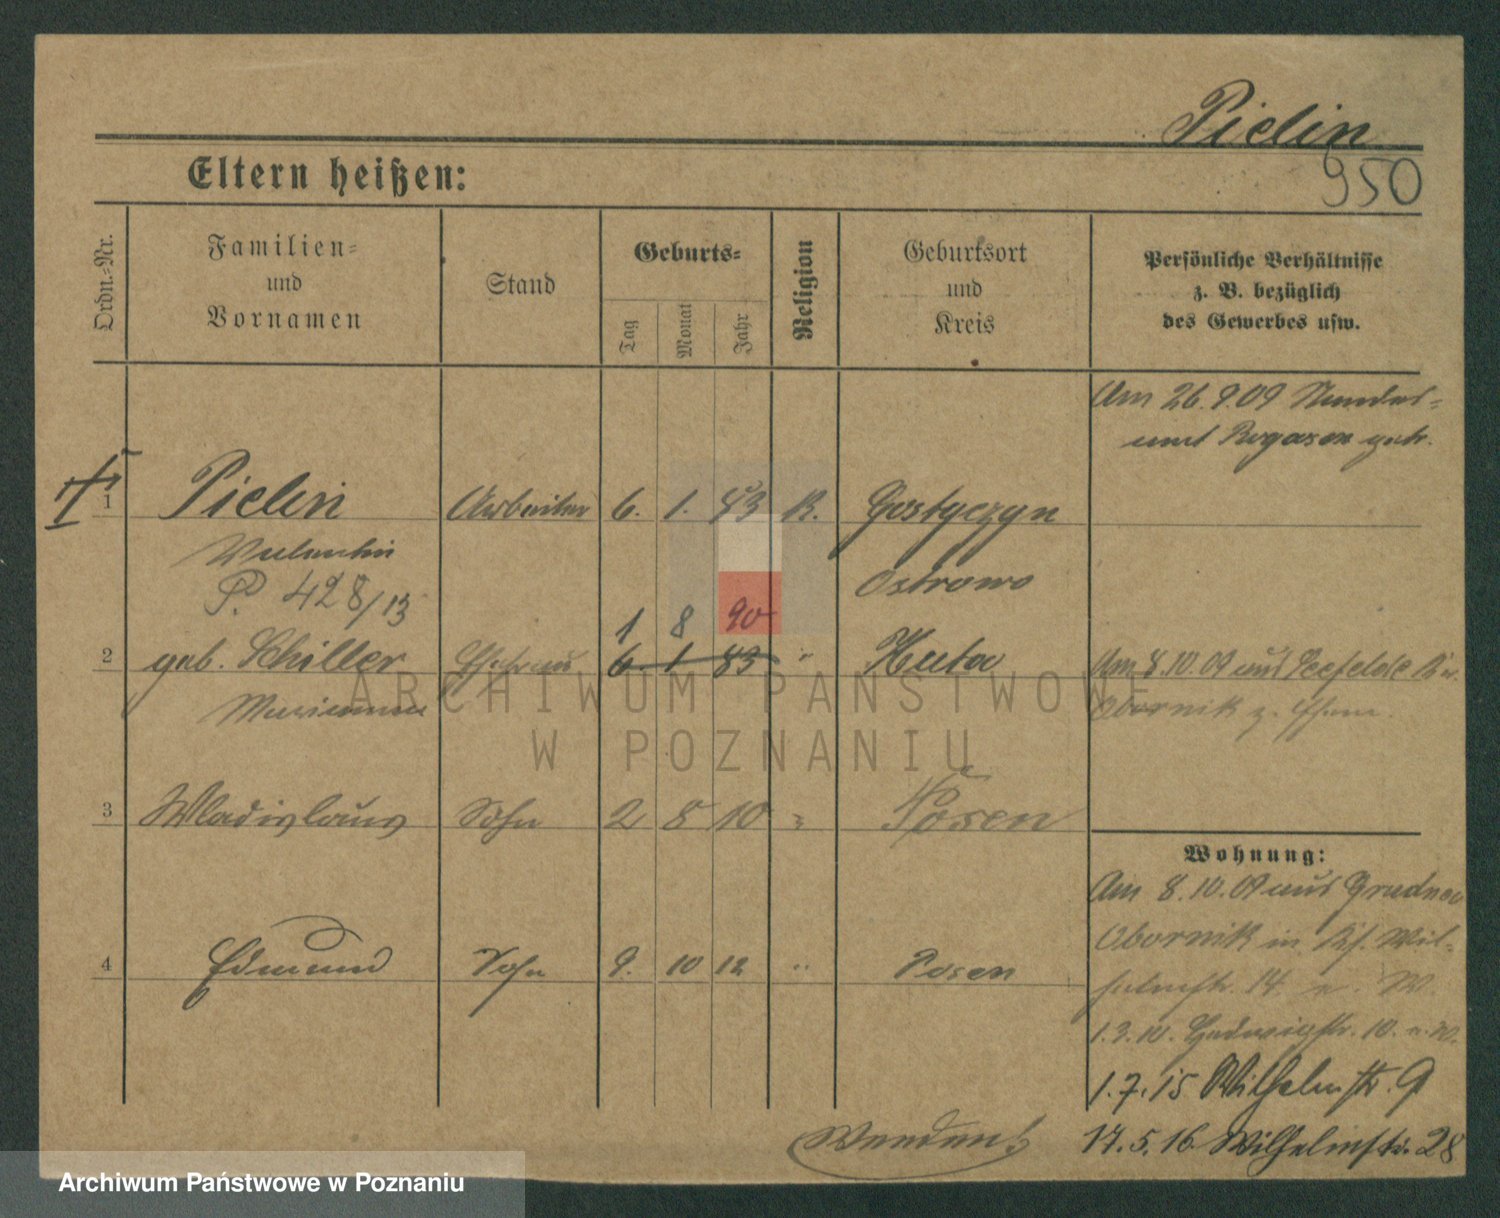 Pielin
950
Eltern heißen:
Ordn.-Nr.
Familien-
und
Vornamen
Stand
Geburts-
Tag
Monat
Jahr
Religion
Geburtsort
und
Kreis
Persönliche Verhältnisse
z. B. bezüglich
des Gewerbes usw.
Am 26.9.09
Rogasen getr.
1 Pielin Arbeiter 6. 1. 83 K. Gostyczyn
Valentin Ostrowo
P. 428/13
1 8 90
2 geb. Schiller Ehefrau 6. 1 83 " Huta
Marianna
Am 8.10.09 aus Seefelde Kr.
Obornik z. Ehem.
3 Wladislaus Sohn 2 8 10 " Posen
4 Edmund Sohn 9. 10 12 " Posen
Wohnung:
Am 8.10.09 aus Grudna
Obornik in Wil-
helmstr. 14. W.
1.3.10. Hedwigstr. 10.
1.7.15 Wilhelmstr. 9
17.5.16. Wilhelmstr. 28
Wenden!
ARCHIWUM PAŃSTWOWE
W POZNANIU
Archiwum Państwowe w Poznaniu